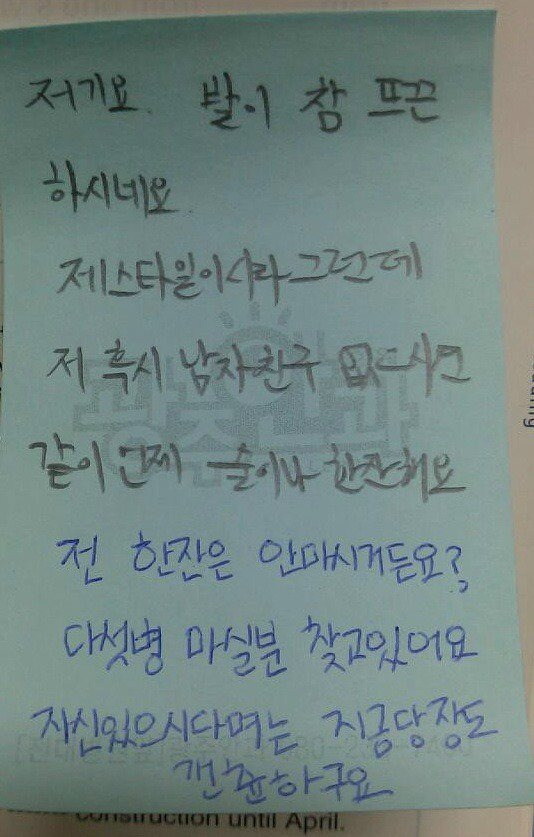 저기요. 발이 참 뜨끈
하시네요
제스타일이시라그런데
저 혹시 남자친구 없으시면
같이 언제 술이나 한잔해요
전 한잔은 안마시거든요?
다섯병 마실분 찾고있어요
자신있으시다며는 지금당장도
갠춘하구요
construction until April.